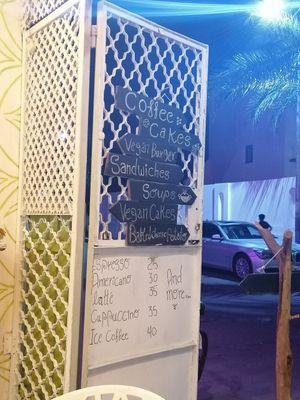 Coffee
Cakes
Vegan Burger
Sandwiches
Soups
Vegan Cakes
Espresso 25
Americano 30
Latté 35
Cappuccino 35
Ice Coffee 40
And
more...